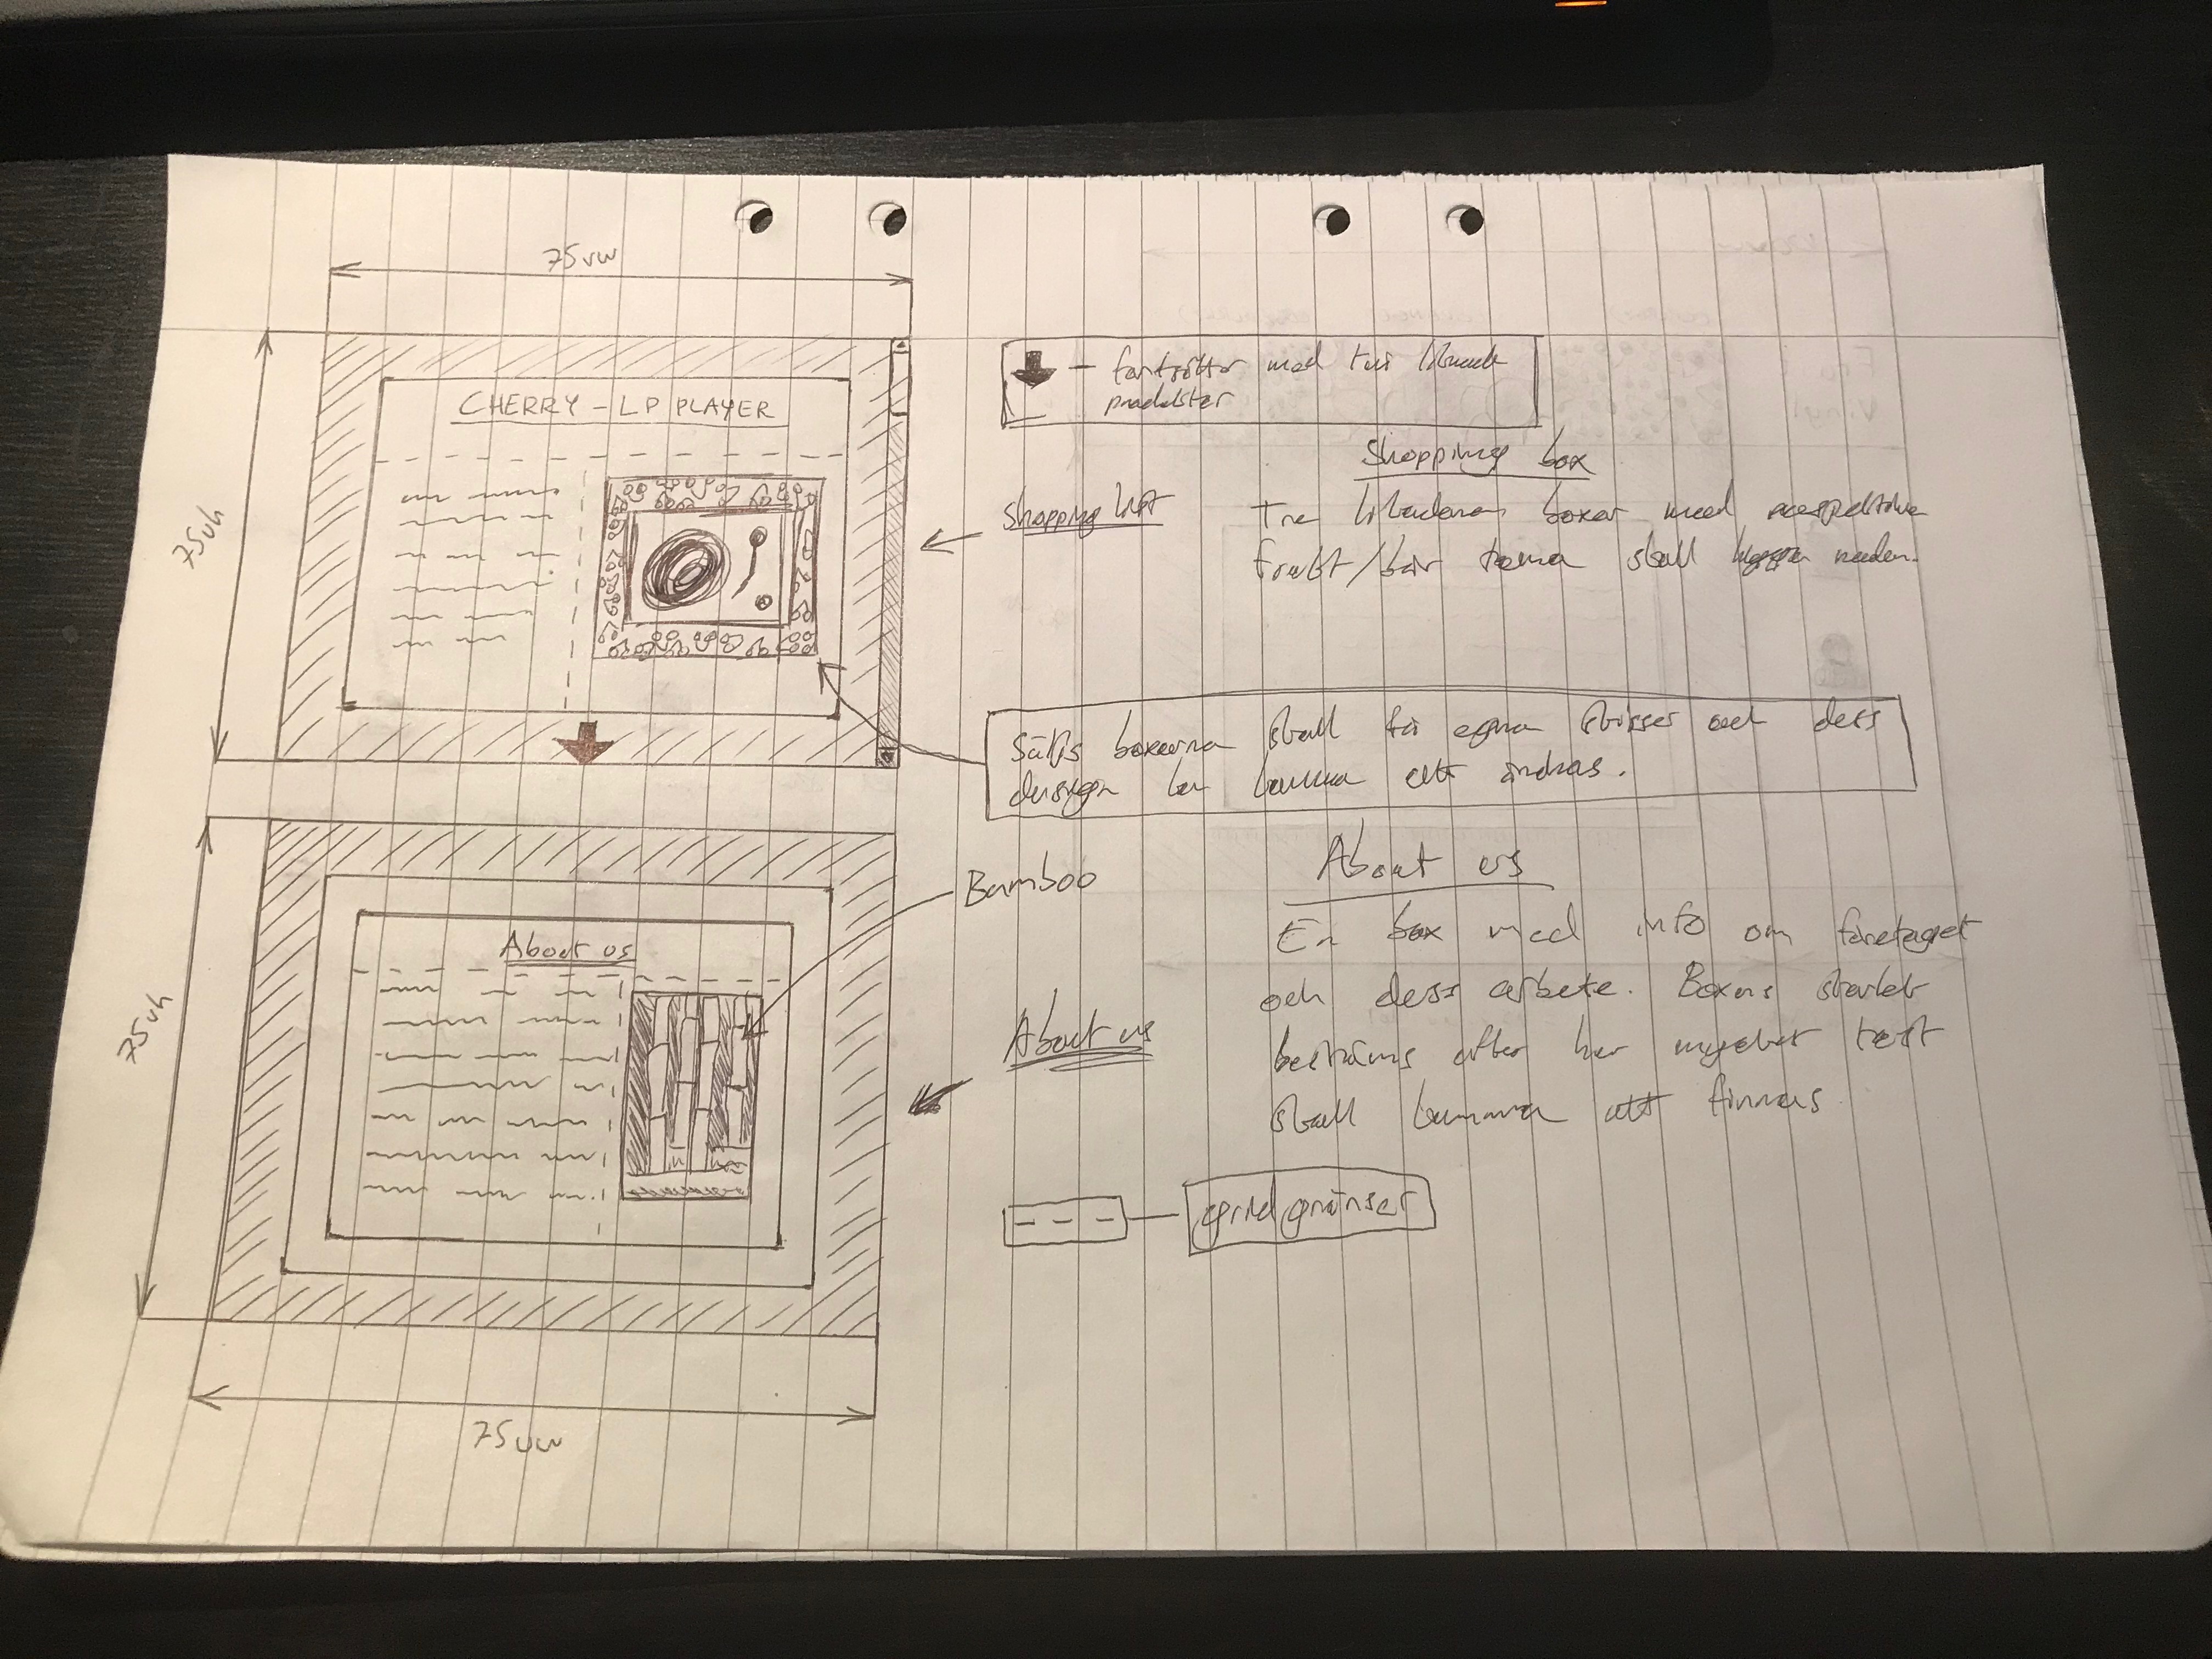 75vw
75vh
CHERRY - LP PLAYER
fortsätter med två liknande
produkter
Shopping box
Shopping list
Tre likadana boxer med respektive
frukt/bär tema skall ligga nedan.
Själva boxarna skall få egna skisser och dess
design kan komma att ändras.
75vh
About us
Bamboo
About us
About us
En box med info om företaget
och dess arbete. Boxens storlek
bestäms efter hur mycket text
skall komma att finnas.
grid gränser
75vw